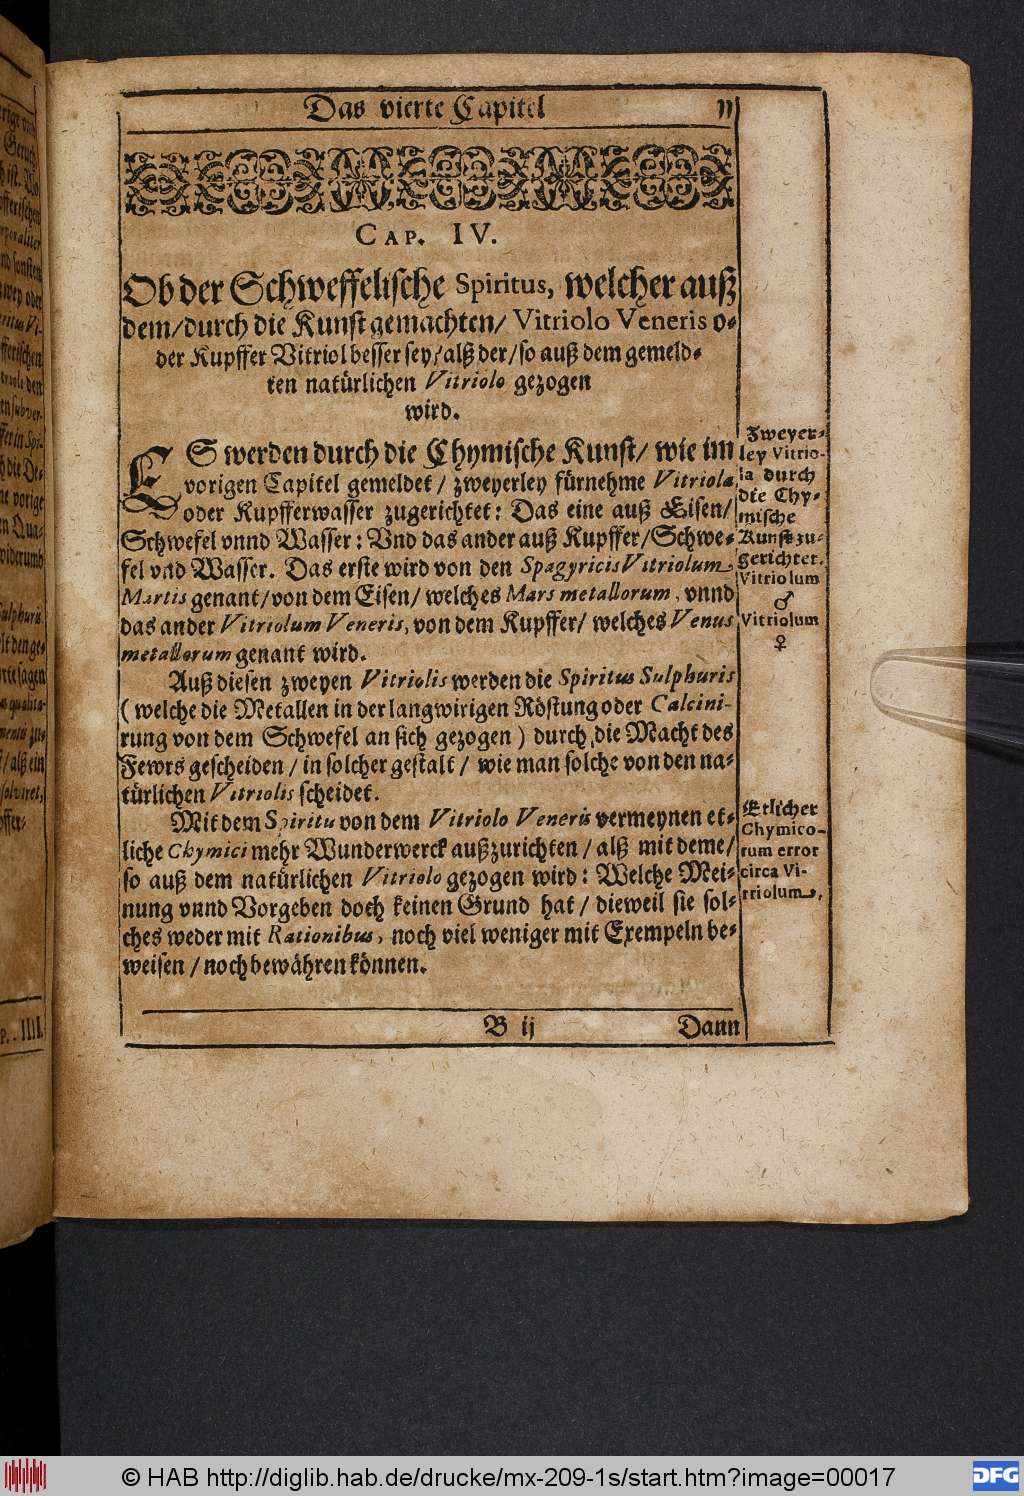 Das vierte Capitel 11
CAP. IV.
Ob der Schweffelische Spiritus, welcher auß
dem/durch die Kunst gemachten/ Vitriolo Veneris o-
der Kupffer Vitriol besser sey/alß der/so auß dem gemeld-
ten natürlichen Vitriolo gezogen
wird.
ES werden durch die Chymische Kunst/ wie im
vorigen Capitel gemeldet/ zweyerley fürnehme Vitriola
oder Kupfferwasser zugerichtet: Das eine auß Eisen/
Schwefel vnnd Wasser: Vnd das ander auß Kupffer/Schwe-
fel vnd Wasser. Das erste wird von den Spagyricis Vitriolum
Martis genant/von dem Eisen/ welches Mars metallorum, vnnd
das ander Vitriolum Veneris, von dem Kupffer/ welches Venus
metallorum genant wird.
Auß diesen zweyen Vitriolis werden die Spiritus Sulphuris
(welche die Metallen in der langwirigen Röstung oder Calcini-
rung von dem Schwefel an sich gezogen) durch die Macht des
Fewrs gescheiden/ in solcher gestalt/ wie man solche von den na-
türlichen Vitriolis scheidet.
Mit dem Spiritu von dem Vitriolo Veneris vermeynen et-
liche Chymici mehr Wunderwerck außzurichten/ alß mit deme/
so auß dem natürlichen Vitriolo gezogen wird: Welche Mei-
nung vnnd Vorgeben doch keinen Grund hat/ dieweil sie sol-
ches weder mit Rationibus, noch viel weniger mit Exempeln be-
weisen/ noch bewähren können.
B ij Dann
Zweyer-
ley Vitrio-
la durch
die Chy-
mische
Kunst zu-
gerichtet.
Vitriolum
♂
Vitriolum
♀
Etlicher
Chymico-
rum error
circa Vi-
triolum.
© HAB http://diglib.hab.de/drucke/mx-209-1s/start.htm?image=00017
DFG